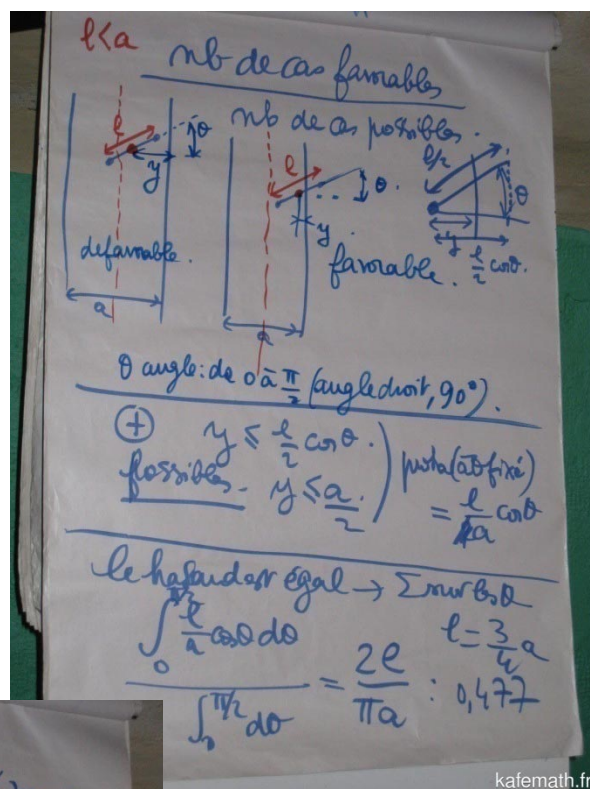 l<a
nb de cas favorables
nb de cas possibles.
l
θ
y
l
θ.
y
l/2
θ
y
l/2 cosθ.
défavorable.
favorable.
a
a
θ angle: de 0 à π/2 (angle droit, 90°).
⊕ y ≤ l/2 cosθ.
possibles. y ≤ a/2.
proba (à θ fixé)
= l/a cosθ
le hasard est égal → Σ sur les θ
∫₀^{π/2} l/a cosθ dθ / ∫₀^{π/2} dθ = 2l/πa : 0,477
l = 3/4 a
kafemath.fr